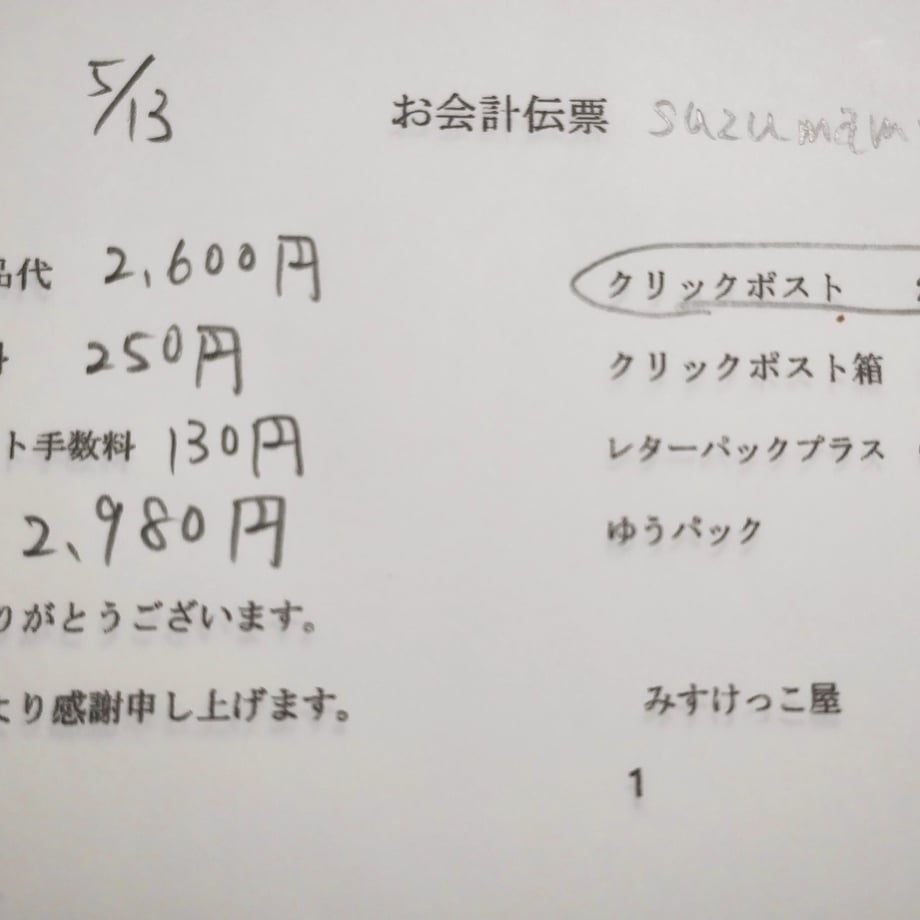 5/13
お会計伝票 suzumam
品代 2,600円
クリックボスト
250円
クリックポスト箱
ト手数料 130円
レターパックプラス
2,980円
ゆうパック
りがとうございます。
より感謝申し上げます。
みすけっこ屋
1